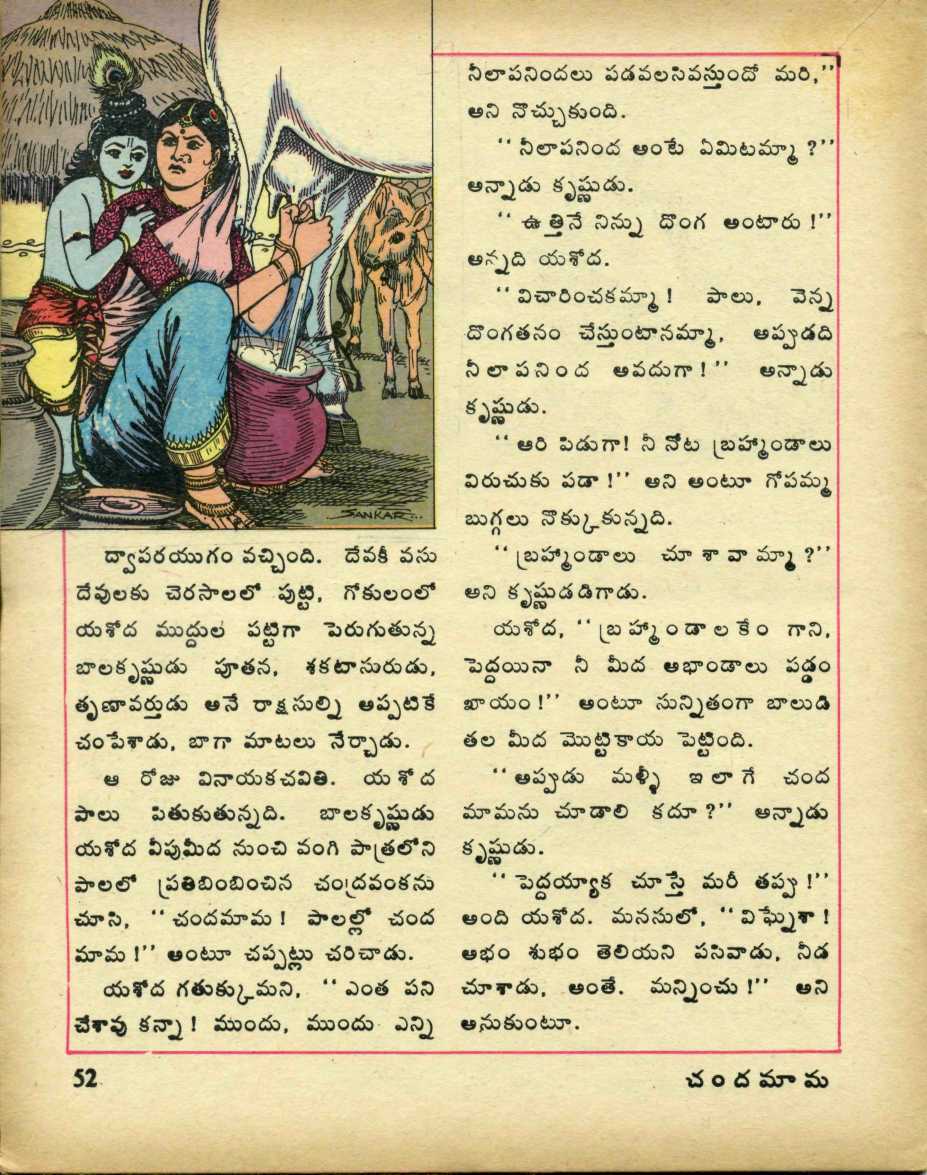 SANKAR...
ద్వాపరయుగం వచ్చింది. దేవకీ వసు
దేవులకు చెరసాలలో పుట్టి, గోకులంలో
యశోద ముద్దుల పట్టిగా పెరుగుతున్న
బాలకృష్ణుడు పూతన, శకటాసురుడు,
తృణావర్తుడు అనే రాక్షసుల్ని అప్పటికే
చంపేశాడు, బాగా మాటలు నేర్చాడు.
ఆ రోజు వినాయకచవితి. యశోద
పాలు పితుకుతున్నది. బాలకృష్ణుడు
యశోద వీపుమీద నుంచి వంగి పాత్రలోని
పాలలో ప్రతిబింబించిన చంద్రవంకను
చూసి, ‘‘చందమామ! పాలల్లో చంద
మామ!’’ అంటూ చప్పట్లు చరిచాడు.
యశోద గతుక్కుమని, ‘‘ఎంత పని
చేశావు కన్నా! ముందు, ముందు ఎన్ని
నీలాపనిందలు పడవలసివస్తుందో మరి,’’
అని నొచ్చుకుంది.
‘‘నీలాపనింద అంటే ఏమిటమ్మా?’’
అన్నాడు కృష్ణుడు.
‘‘ఉత్తినే నిన్ను దొంగ అంటారు!’’
అన్నది యశోద.
‘‘విచారించకమ్మా! పాలు, వెన్న
దొంగతనం చేస్తుంటానమ్మా, అప్పుడది
నీలాపనింద అవదుగా!’’ అన్నాడు
కృష్ణుడు.
‘‘ఆరి పిడుగా! నీ నోట బ్రహ్మాండాలు
విరుచుకు పడా!’’ అని అంటూ గోపమ్మ
బుగ్గలు నొక్కుకున్నది.
‘‘బ్రహ్మాండాలు చూశావామ్మా?’’
అని కృష్ణుడడిగాడు.
యశోద, ‘‘బ్రహ్మాండాలకేం గాని,
పెద్దయినా నీ మీద అభాండాలు పడ్డం
ఖాయం!’’ అంటూ సున్నితంగా బాలుడి
తల మీద మొట్టికాయ పెట్టింది.
‘‘అప్పుడు మళ్ళీ ఇలాగే చంద
మామను చూడాలి కదూ?’’ అన్నాడు
కృష్ణుడు.
‘‘పెద్దయ్యాక చూస్తే మరీ తప్పు!’’
అంది యశోద. మనసులో, ‘‘విఘ్నేశా!
అభం శుభం తెలియని పసివాడు, నీడ
చూశాడు, అంతే. మన్నించు!’’ అని
అనుకుంటూ.
52
చందమామ